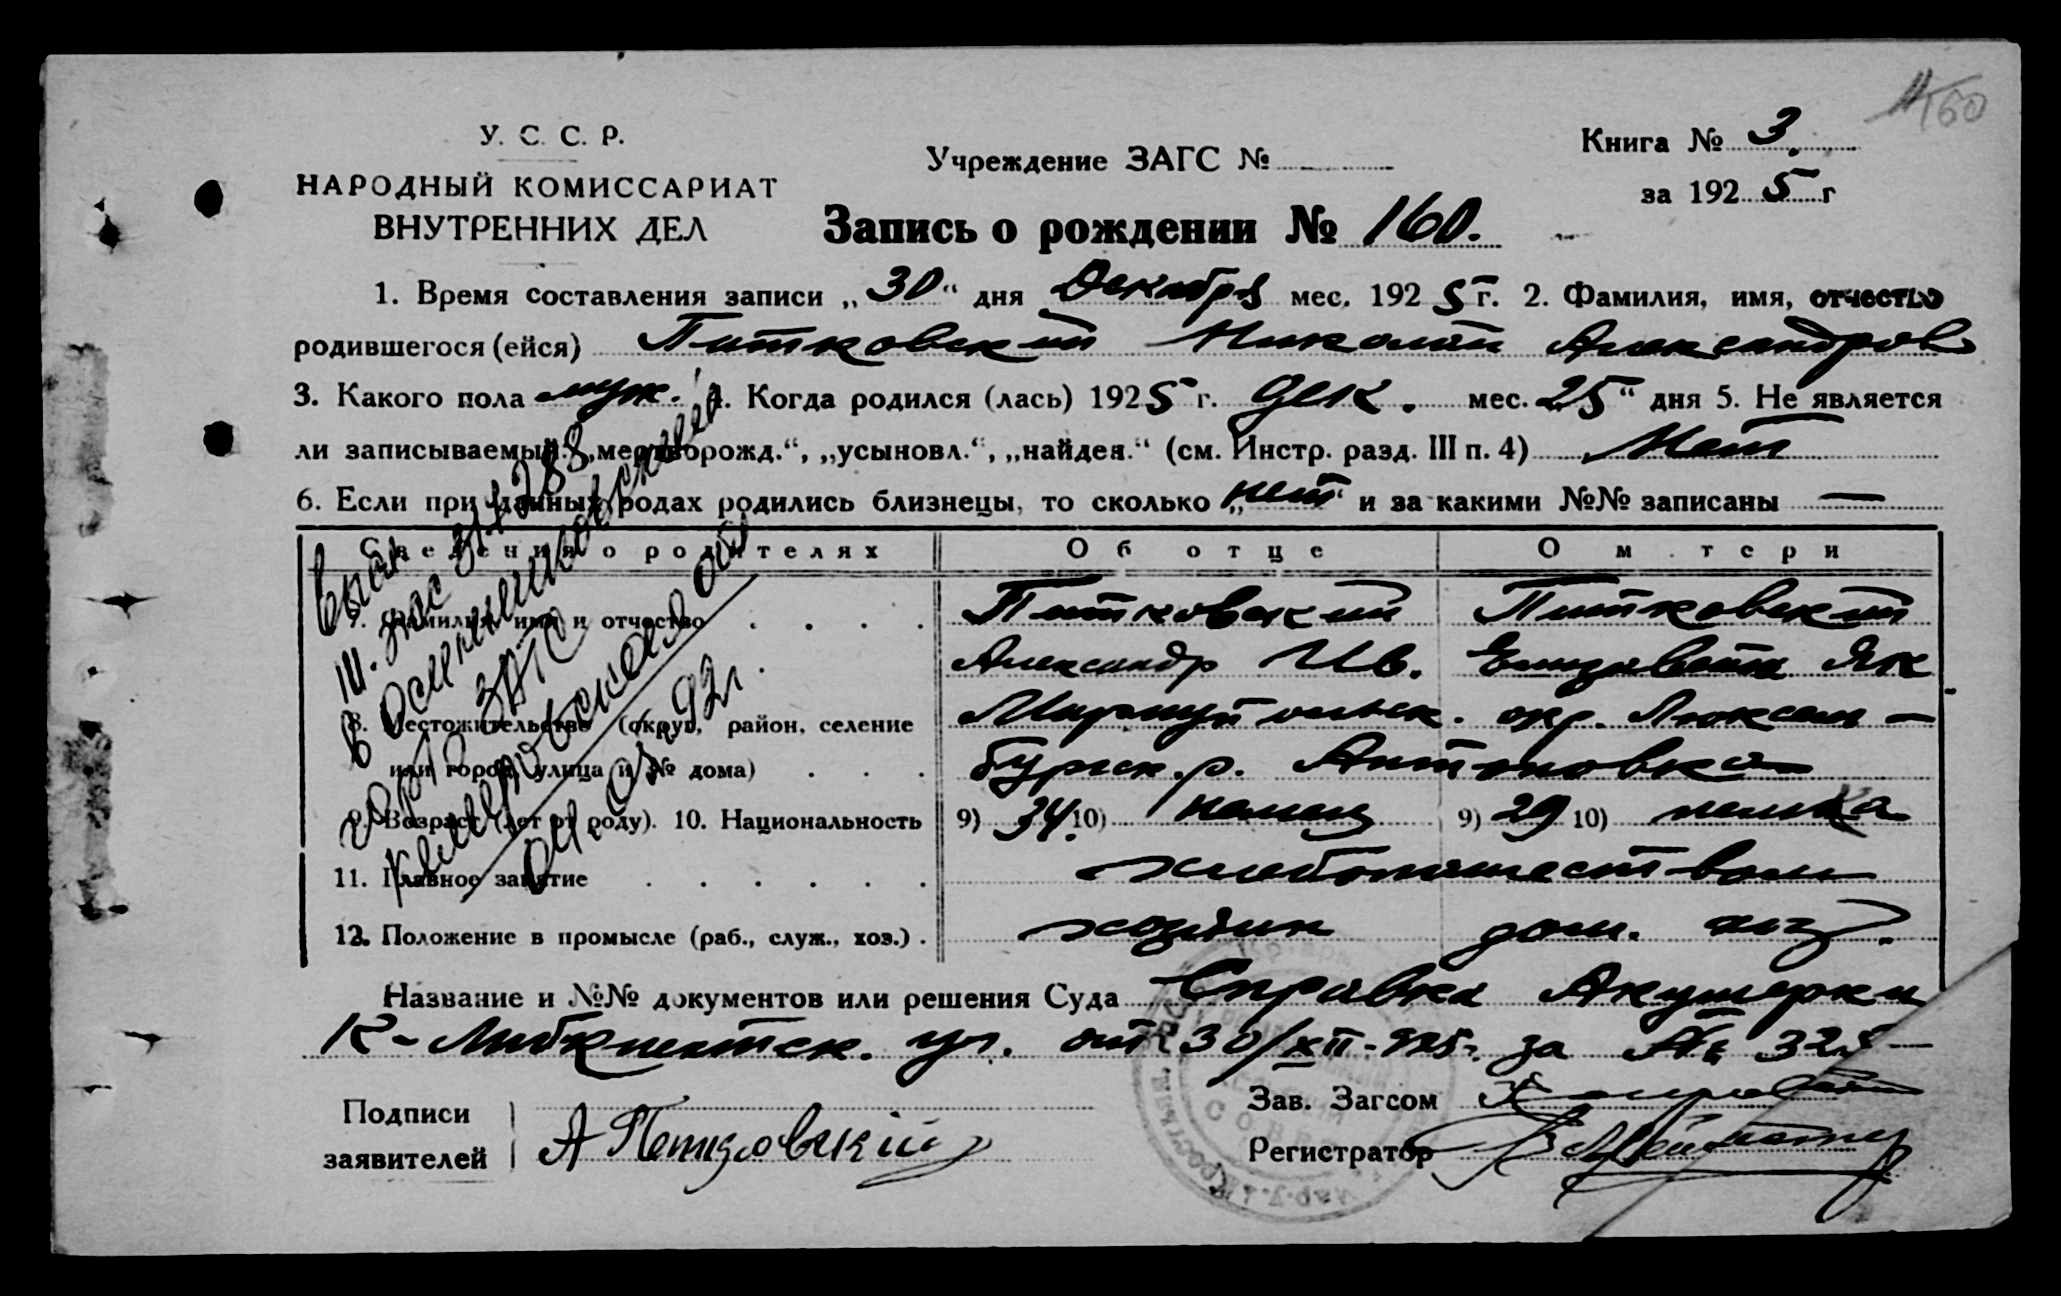 160
У. С. С. Р.
НАРОДНЫЙ КОМИССАРИАТ
ВНУТРЕННИХ ДЕЛ
Учреждение ЗАГС №
Книга № 3.
за 1925 г
Запись о рождении № 160.
1. Время составления записи „30“ дня Декабря мес. 1925 г. 2. Фамилия, имя, отчество
родившегося (ейся) Питковский Николай Александров
3. Какого пола муж. 4. Когда родился (лась) 1925 г. дек. мес. „25“ дня 5. Не является
ли записываемый: „мертворожд.“, „усыновл.“, „найден.“ (см. Инстр. разд. III п. 4) Нет
6. Если при данных родах родились близнецы, то сколько „нет“ и за какими №№ записаны —
Сведения о родителях Об отце О матери
7. Фамилия, имя и отчество Питковский Питковский
Александр Ив. Елизавета Як
8. Местожительство (округ, район, селение Мариупольск. окр. Люксем-
или город, улица и № дома) бургск. р. Антоновка
9. Возраст (лет от роду). 10. Национальность 9) 34. 10) немец 9) 29 10) немка
11. Главное занятие хлебопашеством
12. Положение в промысле (раб., служ., хоз.) хозяин дом. хоз.
Название и №№ документов или решения Суда Справка Акушерки
К-Либкнехтск. уч. от 30/XII-925г. за № 325-
Подписи
заявителей
А Петковский
Зав. Загсом
Регистратор
III. ЗАГС
ЗАГС
Кемеровской обл
92г.